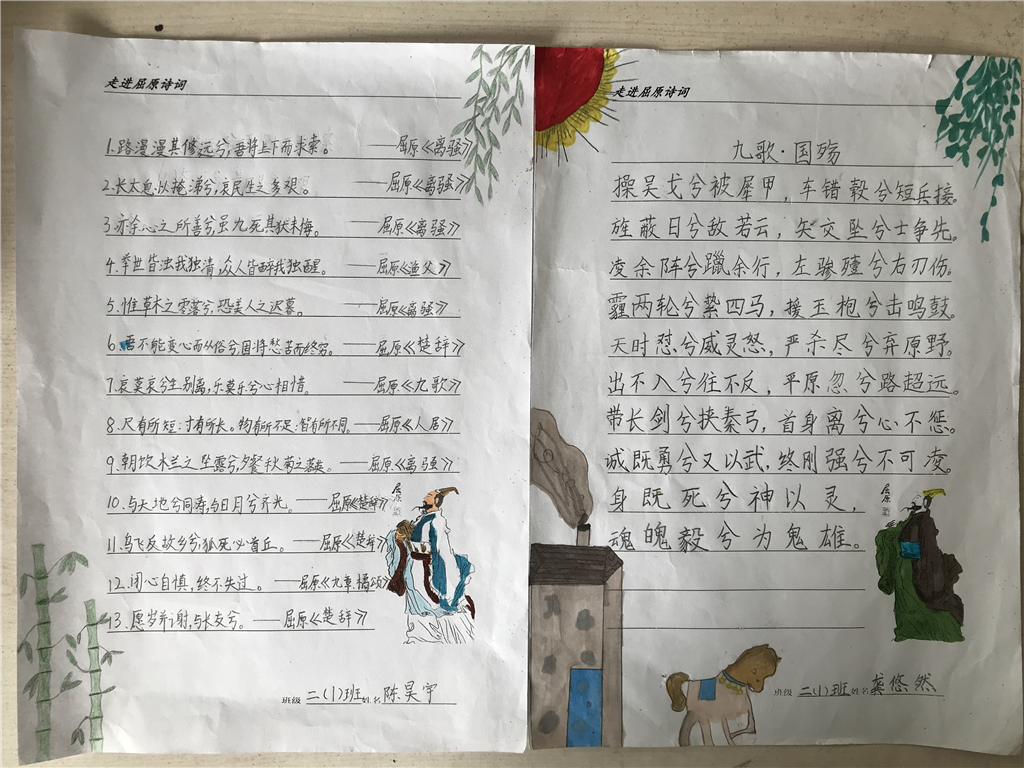 走进屈原诗词
1.路漫漫其修远兮,吾将上下而求索。 ——屈原《离强》
2.长太息以掩涕兮,哀民生之多艰。 ——屈原《离强》
3.亦余心之所善兮,虽九死其犹未悔。 ——屈原《离强》
4.举世皆浊我独清,众人皆醉我独醒。 ——屈原《渔父》
5.惟草木之零落兮,恐美人之迟暮。 ——屈原《离强》
6.吾不能变心而从俗兮,固将愁苦而终穷。 ——屈原《楚辞》
7.哀莫哀兮生别离,乐莫乐兮心相惜。 ——屈原《九歌》
8.尺有所短,寸有所长。物有所不足;智有所不同。 ——屈原《人居》
9.朝饮木兰之坠露兮,夕餐秋菊之落英。 ——屈原《离强》
10.与天地兮同寿,与日月兮齐光。 ——屈原《楚辞》
11.鸟飞反故乡兮,狐死必首丘。 ——屈原《楚辞》
12.闭心自慎,终不失过。 ——屈原《九章·橘颂》
13.愿岁并谢,与长友兮。 ——屈原《楚辞》
屈原
班级 二(1)班 姓名 陈昊宇
走进屈原诗词
九歌·国殇
操吴戈兮被犀甲,车错毂兮短兵接。
旌蔽日兮敌若云,矢交坠兮士争先。
凌余阵兮躐余行,左骖殪兮右刃伤。
霾两轮兮絷四马,援玉枹兮击鸣鼓。
天时怼兮威灵怒,严杀尽兮弃原野。
出不入兮往不反,平原忽兮路超远。
带长剑兮挟秦弓,首身离兮心不惩。
诚既勇兮又以武,终刚强兮不可凌。
身既死兮神以灵,
魂魄毅兮为鬼雄。
屈原
班级 二(1)班 姓名 龚悠然